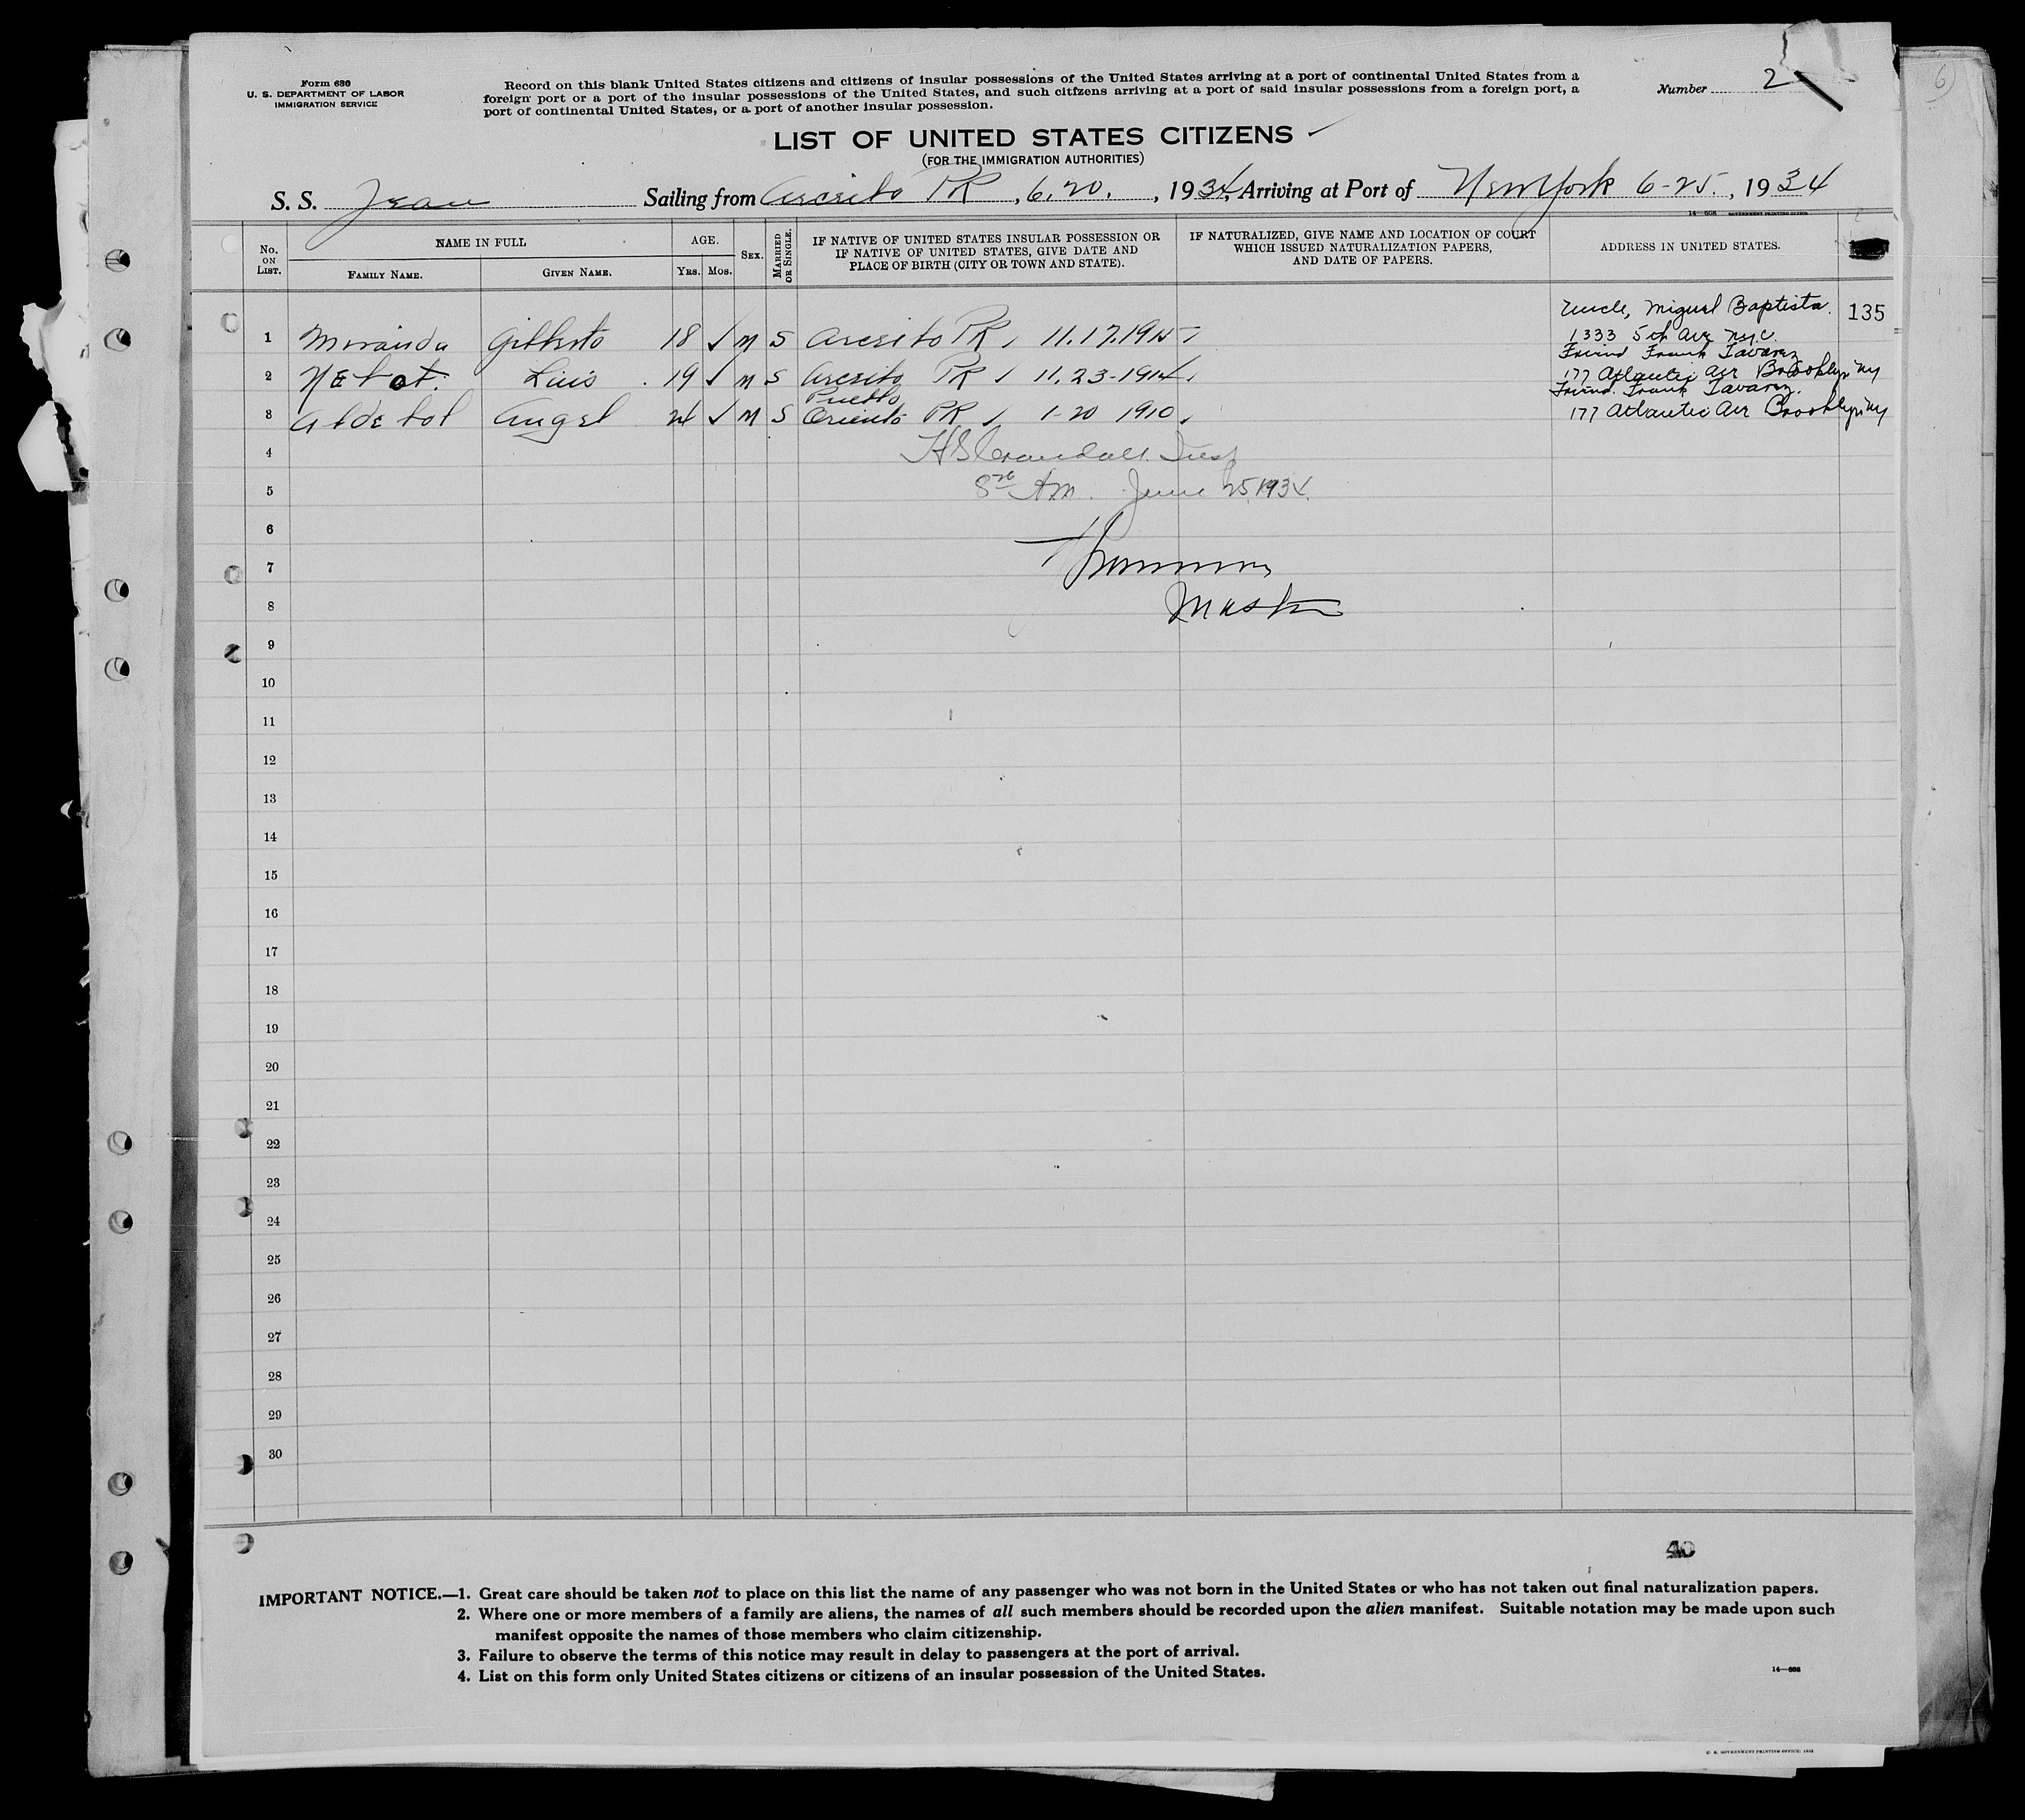 Form 630
U. S. DEPARTMENT OF LABOR
IMMIGRATION SERVICE
Record on this blank United States citizens and citizens of insular possessions of the United States arriving at a port of continental United States from a
foreign port or a port of the insular possessions of the United States, and such citizens arriving at a port of said insular possessions from a foreign port, a
port of continental United States, or a port of another insular possession.
Number 2
6
LIST OF UNITED STATES CITIZENS
(FOR THE IMMIGRATION AUTHORITIES)
S. S. Jean Sailing from Arecito PR, 6.20., 1934, Arriving at Port of New York 6-25., 1934
14—608 GOVERNMENT PRINTING OFFICE
No. ON LIST. NAME IN FULL FAMILY NAME. GIVEN NAME. AGE. YRS. MOS. SEX. MARRIED OR SINGLE. IF NATIVE OF UNITED STATES INSULAR POSSESSION OR IF NATIVE OF UNITED STATES, GIVE DATE AND PLACE OF BIRTH (CITY OR TOWN AND STATE). IF NATURALIZED, GIVE NAME AND LOCATION OF COURT WHICH ISSUED NATURALIZATION PAPERS, AND DATE OF PAPERS. ADDRESS IN UNITED STATES.
Uncle, Miguel Baptista. 135
1 Miranda Gilberto 18 ✓ M S Arecito PR, 11.17.1915 1333 5th Ave NYC.
Friend Frank Tavarez
2 Netot. Luis 19 ✓ M S Arecito PR ✓ 11.23-1914 177 Atlantic Ave Brooklyn NY
Pueblo Friend. Frank Tavarez.
3 Aldebol Angel 24 ✓ M S Oriento PR ✓ 1-20 1910 177 Atlantic Ave Brooklyn NY
4 HS Crandall Insp
5 8 AM. June 25, 1934.
6
7
8 Master
9
10
11
12
13
14
15
16
17
18
19
20
21
22
23
24
25
26
27
28
29
30
40
IMPORTANT NOTICE.—1. Great care should be taken not to place on this list the name of any passenger who was not born in the United States or who has not taken out final naturalization papers.
2. Where one or more members of a family are aliens, the names of all such members should be recorded upon the alien manifest. Suitable notation may be made upon such
manifest opposite the names of those members who claim citizenship.
3. Failure to observe the terms of this notice may result in delay to passengers at the port of arrival.
4. List on this form only United States citizens or citizens of an insular possession of the United States.
14—608